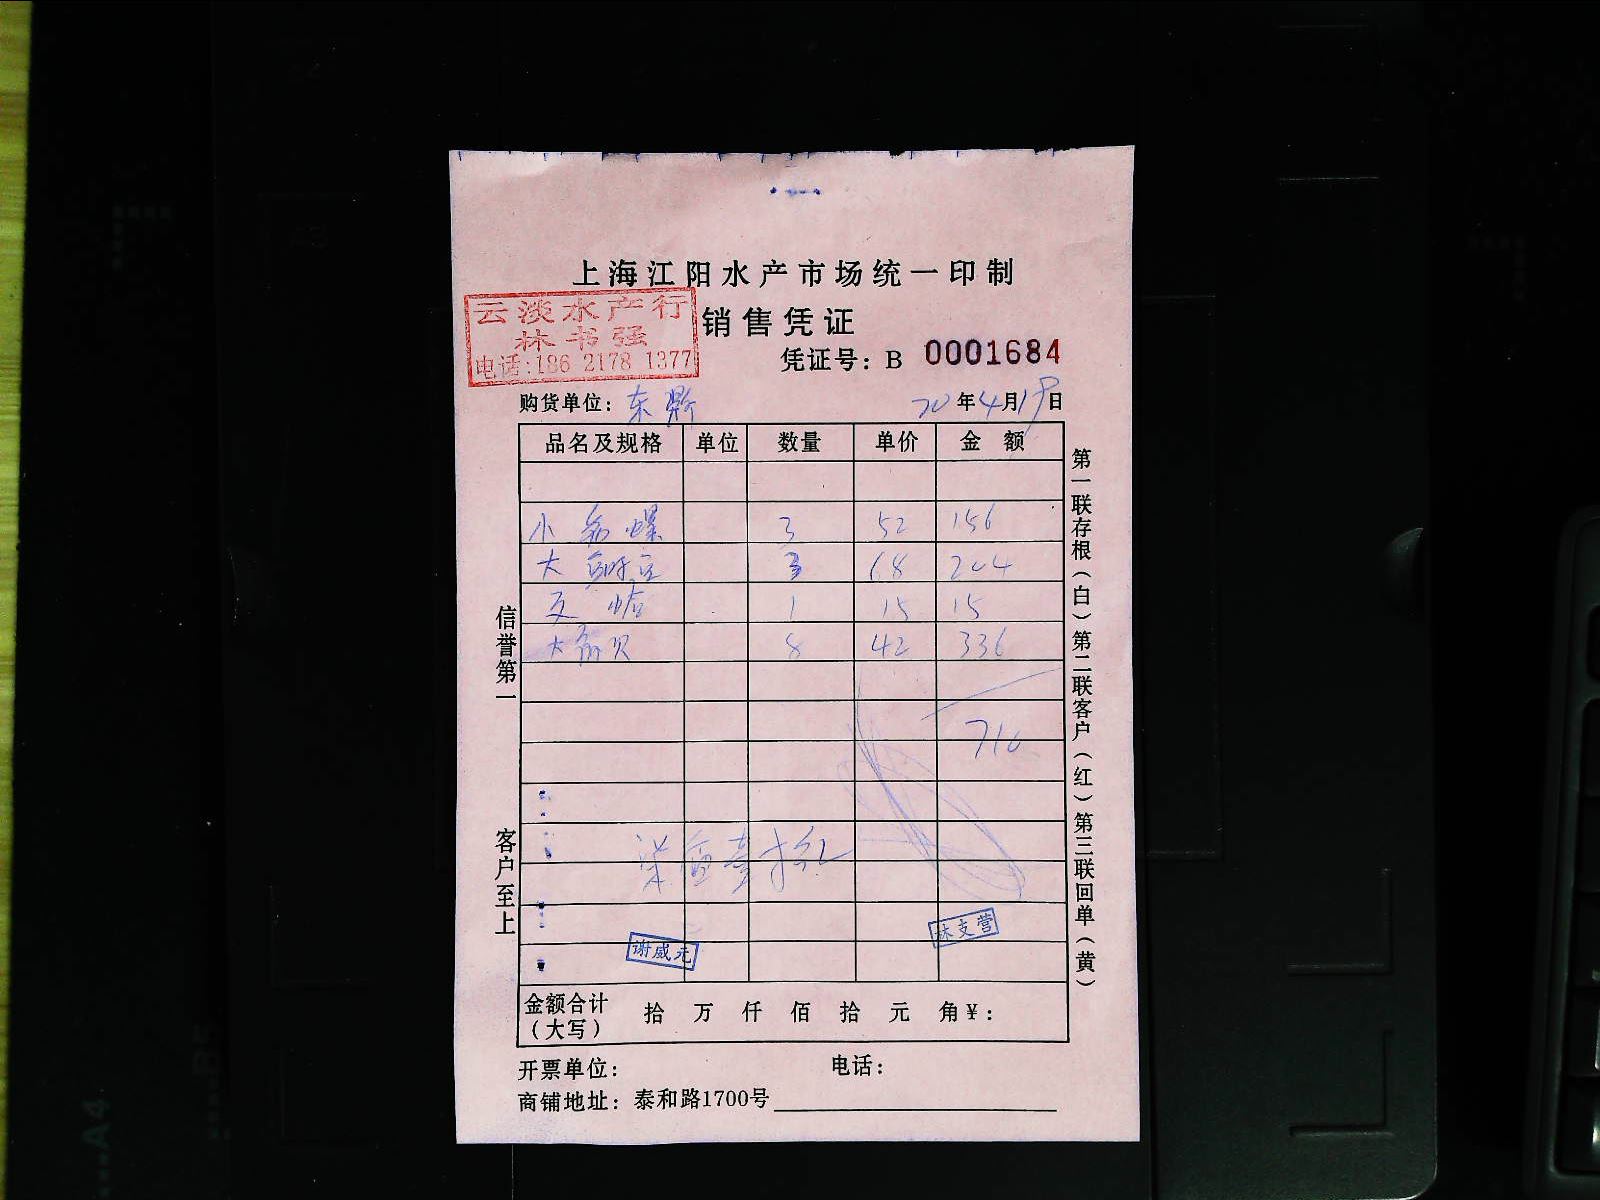 上海江阳水产市场统一印制
云淡水产行
林书强
电话:186 2178 1377
销售凭证
凭证号: B 0001684
购货单位: 东 20年4月19日
品名及规格 单位 数量 单价 金额
小 螺 3 52 156
大 3 68 204
文蛤 1 15 15
大 贝 8 42 336
710
谢威元
林支营
金额合计(大写) 拾 万 仟 佰 拾 元 角¥:
开票单位: 电话:
商铺地址: 泰和路1700号
信誉第一
客户至上
第一联存根(白)第二联客户(红)第三联回单(黄)